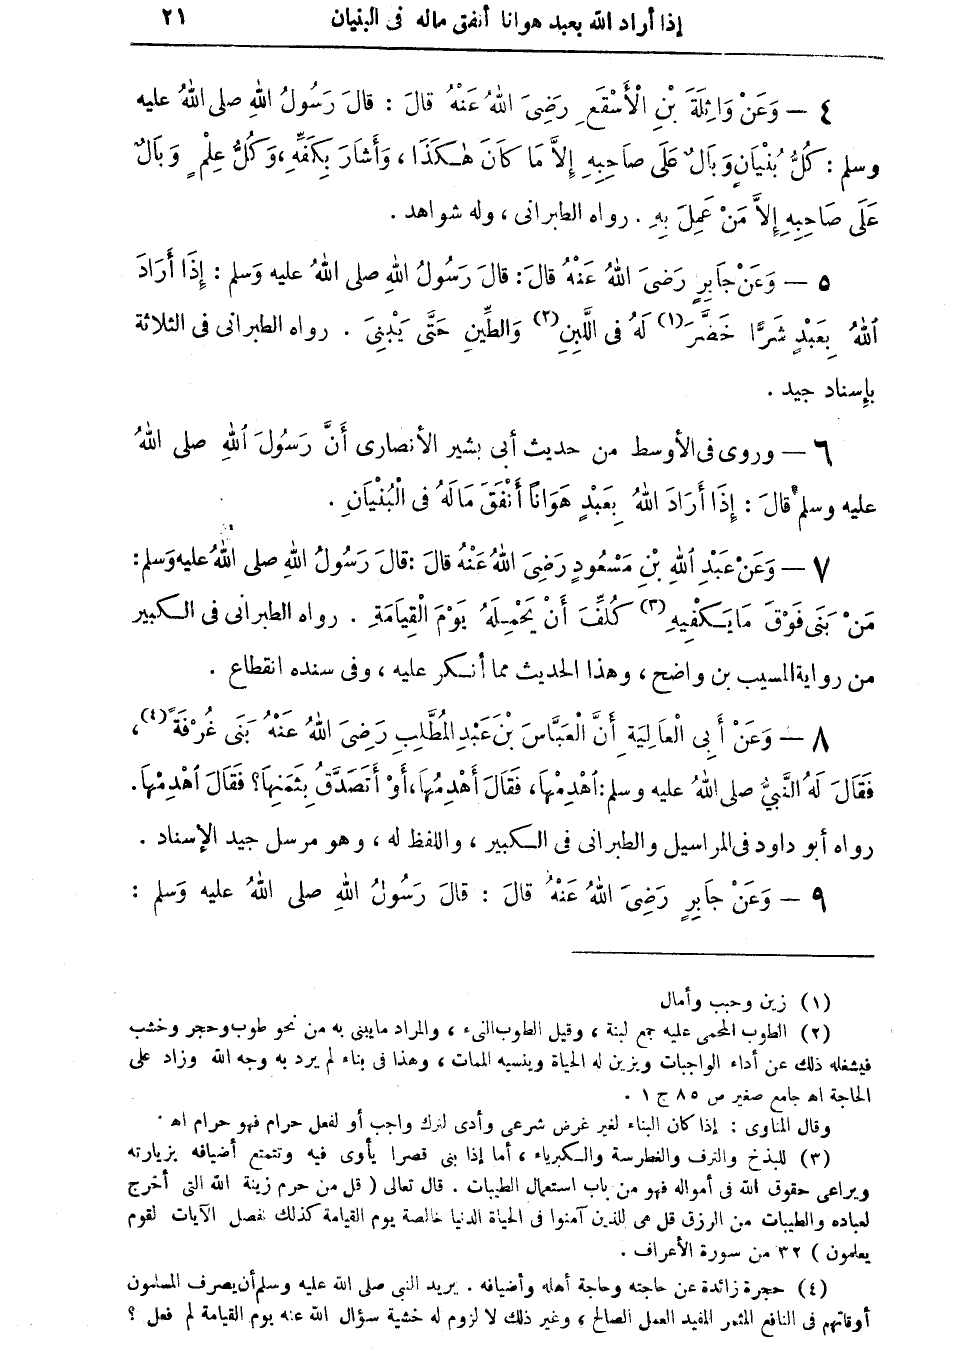 إذا أراد الله بعبد هوانا أنفق ماله فى البنيان ٢١
٤ — وَعَنْ وَاثِلَةَ بْنِ الْأَسْقَعِ رَضِىَ اللهُ عَنْهُ قالَ : قالَ رَسُولُ اللهِ صلى اللهُ عليه
وسلم : كُلُّ بُنْيَانٍ وَبَالٌ عَلَى صَاحِبِهِ إِلاَّ مَا كَانَ هٰكَذَا ، وَأَشَارَ بِكَفِّهِ ، وَكُلُّ عِلْمٍ وَبَالٌ
عَلَى صَاحِبِهِ إِلاَّ مَنْ عَمِلَ بِهِ . رواه الطبرانى ، وله شواهد .
٥ — وَعَنْ جَابِرٍ رَضِىَ اللهُ عَنْهُ قالَ : قالَ رَسُولُ اللهِ صلى اللهُ عليه وَسلم : إِذَا أَرَادَ
ٱللهُ بِعَبْدٍ شَرًّا خَضَّرَ (١) لَهُ فى اللَّبِنِ (٢) وَالطِّينِ حَتَّى يَبْنِىَ . رواه الطبرانى فى الثلاثة
بإسناد جيد .
٦ — وروى فى الأوسط من حديث أبى بشير الأنصارى أَنَّ رَسُولَ ٱللهِ صلى اللهُ
عليه وسلم قالَ : إِذَا أَرَادَ اللهُ بِعَبْدٍ هَوَاناً أَنْفَقَ مَالَهُ فى الْبُنْيَانِ .
٧ — وَعَنْ عَبْدِ ٱللهِ بْنِ مَسْعُودٍ رَضِىَ اللهُ عَنْهُ قالَ : قالَ رَسُولُ اللهِ صلى اللهُ عليه وَسلم :
مَنْ بَنَى فَوْقَ مَا يَكْفِيهِ (٣) كُلِّفَ أَنْ يَحْمِلَهُ يَوْمَ الْقِيَامَةِ . رواه الطبرانى فى الكبير
من رواية المسيب بن واضح ، وهذا الحديث مما أنكر عليه ، وفى سنده انقطاع .
٨ — وَعَنْ أَبِى الْعَالِيَةِ أَنَّ الْعَبَّاسَ بْنَ عَبْدِ المُطَّلِبِ رَضِىَ اللهُ عَنْهُ بَنَى غُرْفَةً (٤) ،
فَقَالَ لَهُ النَّبِىُّ صلى اللهُ عليه وسلم : ٱهْدِمْهَا ، فَقَالَ أَهْدِمُهَا ، أَوْ أَتَصَدَّقُ بِثَمَنِهَا ؟ فَقَالَ ٱهْدِمْهَا .
رواه أبو داود فى المراسيل والطبرانى فى الكبير ، واللفظ له ، وهو مرسل جيد الإسناد .
٩ — وَعَنْ جَابِرٍ رَضِىَ اللهُ عَنْهُ قالَ : قالَ رَسُولُ اللهِ صلى اللهُ عليه وَسلم :
(١) زين وحبب وأمال
(٢) الطوب المحمى عليه جمع لبنة ، وقيل الطوب النىء ، والمراد مايبنى به من نحو طوب وحجر وخشب
فيشغله ذلك عن أداء الواجبات ويزين له الحياة وينسيه الممات ، وهذا فى بناء لم يرد به وجه الله وزاد على
الحاجة اه جامع صغير ص ٨٥ ج ١ .
وقال المناوى : إذا كان البناء لغير غرض شرعى وأدى لترك واجب أو لفعل حرام فهو حرام اه .
(٣) للبذخ والترف والغطرسة والكبرياء ، أما إذا بنى قصرا يأوى فيه وتتمتع أضيافه بزيارته
ويراعى حقوق الله فى أمواله فهو من باب استعمال الطيبات . قال تعالى ( قل من حرم زينة الله التى أخرج
لعباده والطيبات من الرزق قل هى للذين آمنوا فى الحياة الدنيا خالصة يوم القيامة كذلك نفصل الآيات لقوم
يعلمون ) ٣٢ من سورة الأعراف .
(٤) حجرة زائدة عن حاجته وحاجة أهله وأضيافه . يريد النبي صلى الله عليه وسلم أن يصرف المسلمون
أوقاتهم فى النافع المثمر المفيد العمل الصالح ، وغير ذلك لا لزوم له خشية سؤال الله عنه يوم القيامة لم فعل ؟